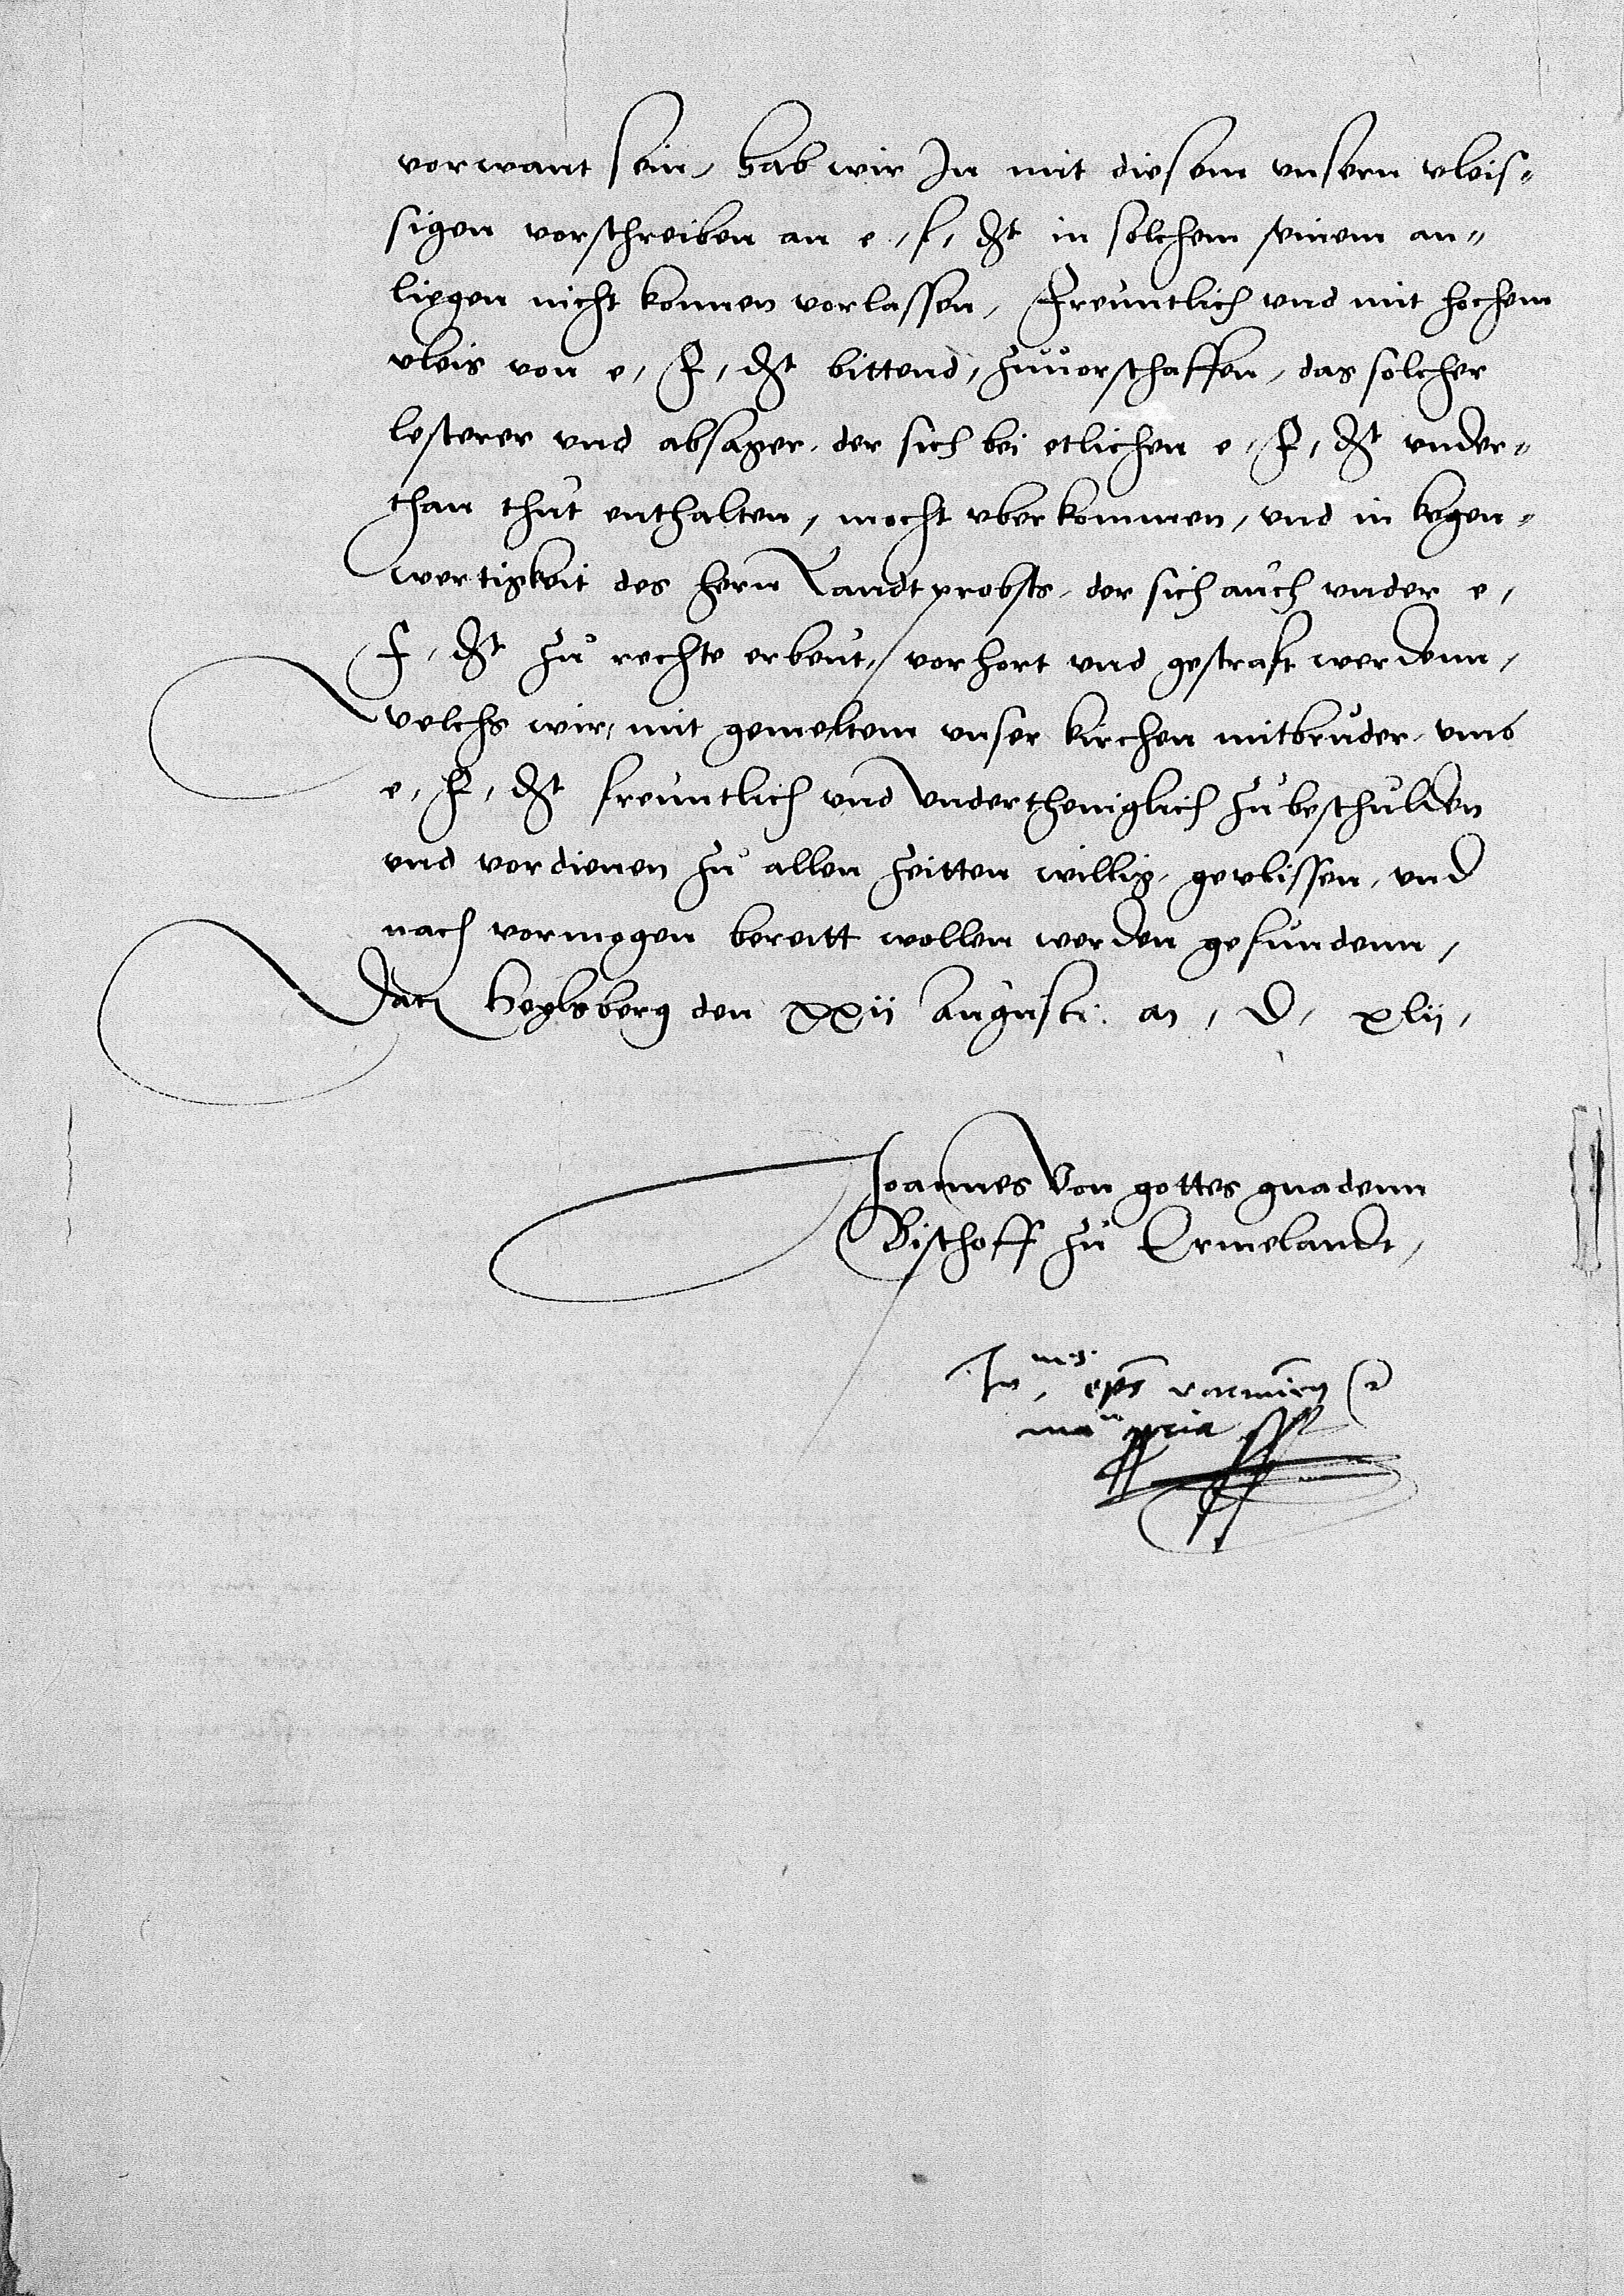 vorwant sein, hab wir In mit diesem unsern vleis-
sigen vorschreiben an e, f, dt in solchem seinem an-
liggen nicht konnen vorlassen, Freuntlich und mit hochem
vleis von e, F, dt bittend, zuvorschaffen, das solcher
lesterer und absager, der sich bei etlichen e, F, dt under-
than thut enthalten, mocht uberkommen, und in kegen-
wertigkeit des hern Landtprobsts, der sich auch under e,
F, dt zu rechte erbeut, vorhort und gestraft werdenn,
welchs wir, mit gemeltem unser kirchen mitbruder, umb
e, F, dt freuntlich und undertheniglich zubeschulden
und vordienen zu allen zeitten willig, gevlissen, und
nach vormogen bereitt wollen werden gefundenn,
Dat Heylsberg den xxii Augusti an, D, xlii,
Joannes Von gottes gnadenn
Bischoff zu Ermelandt,
Jo, eps varmien
manu ppria sst